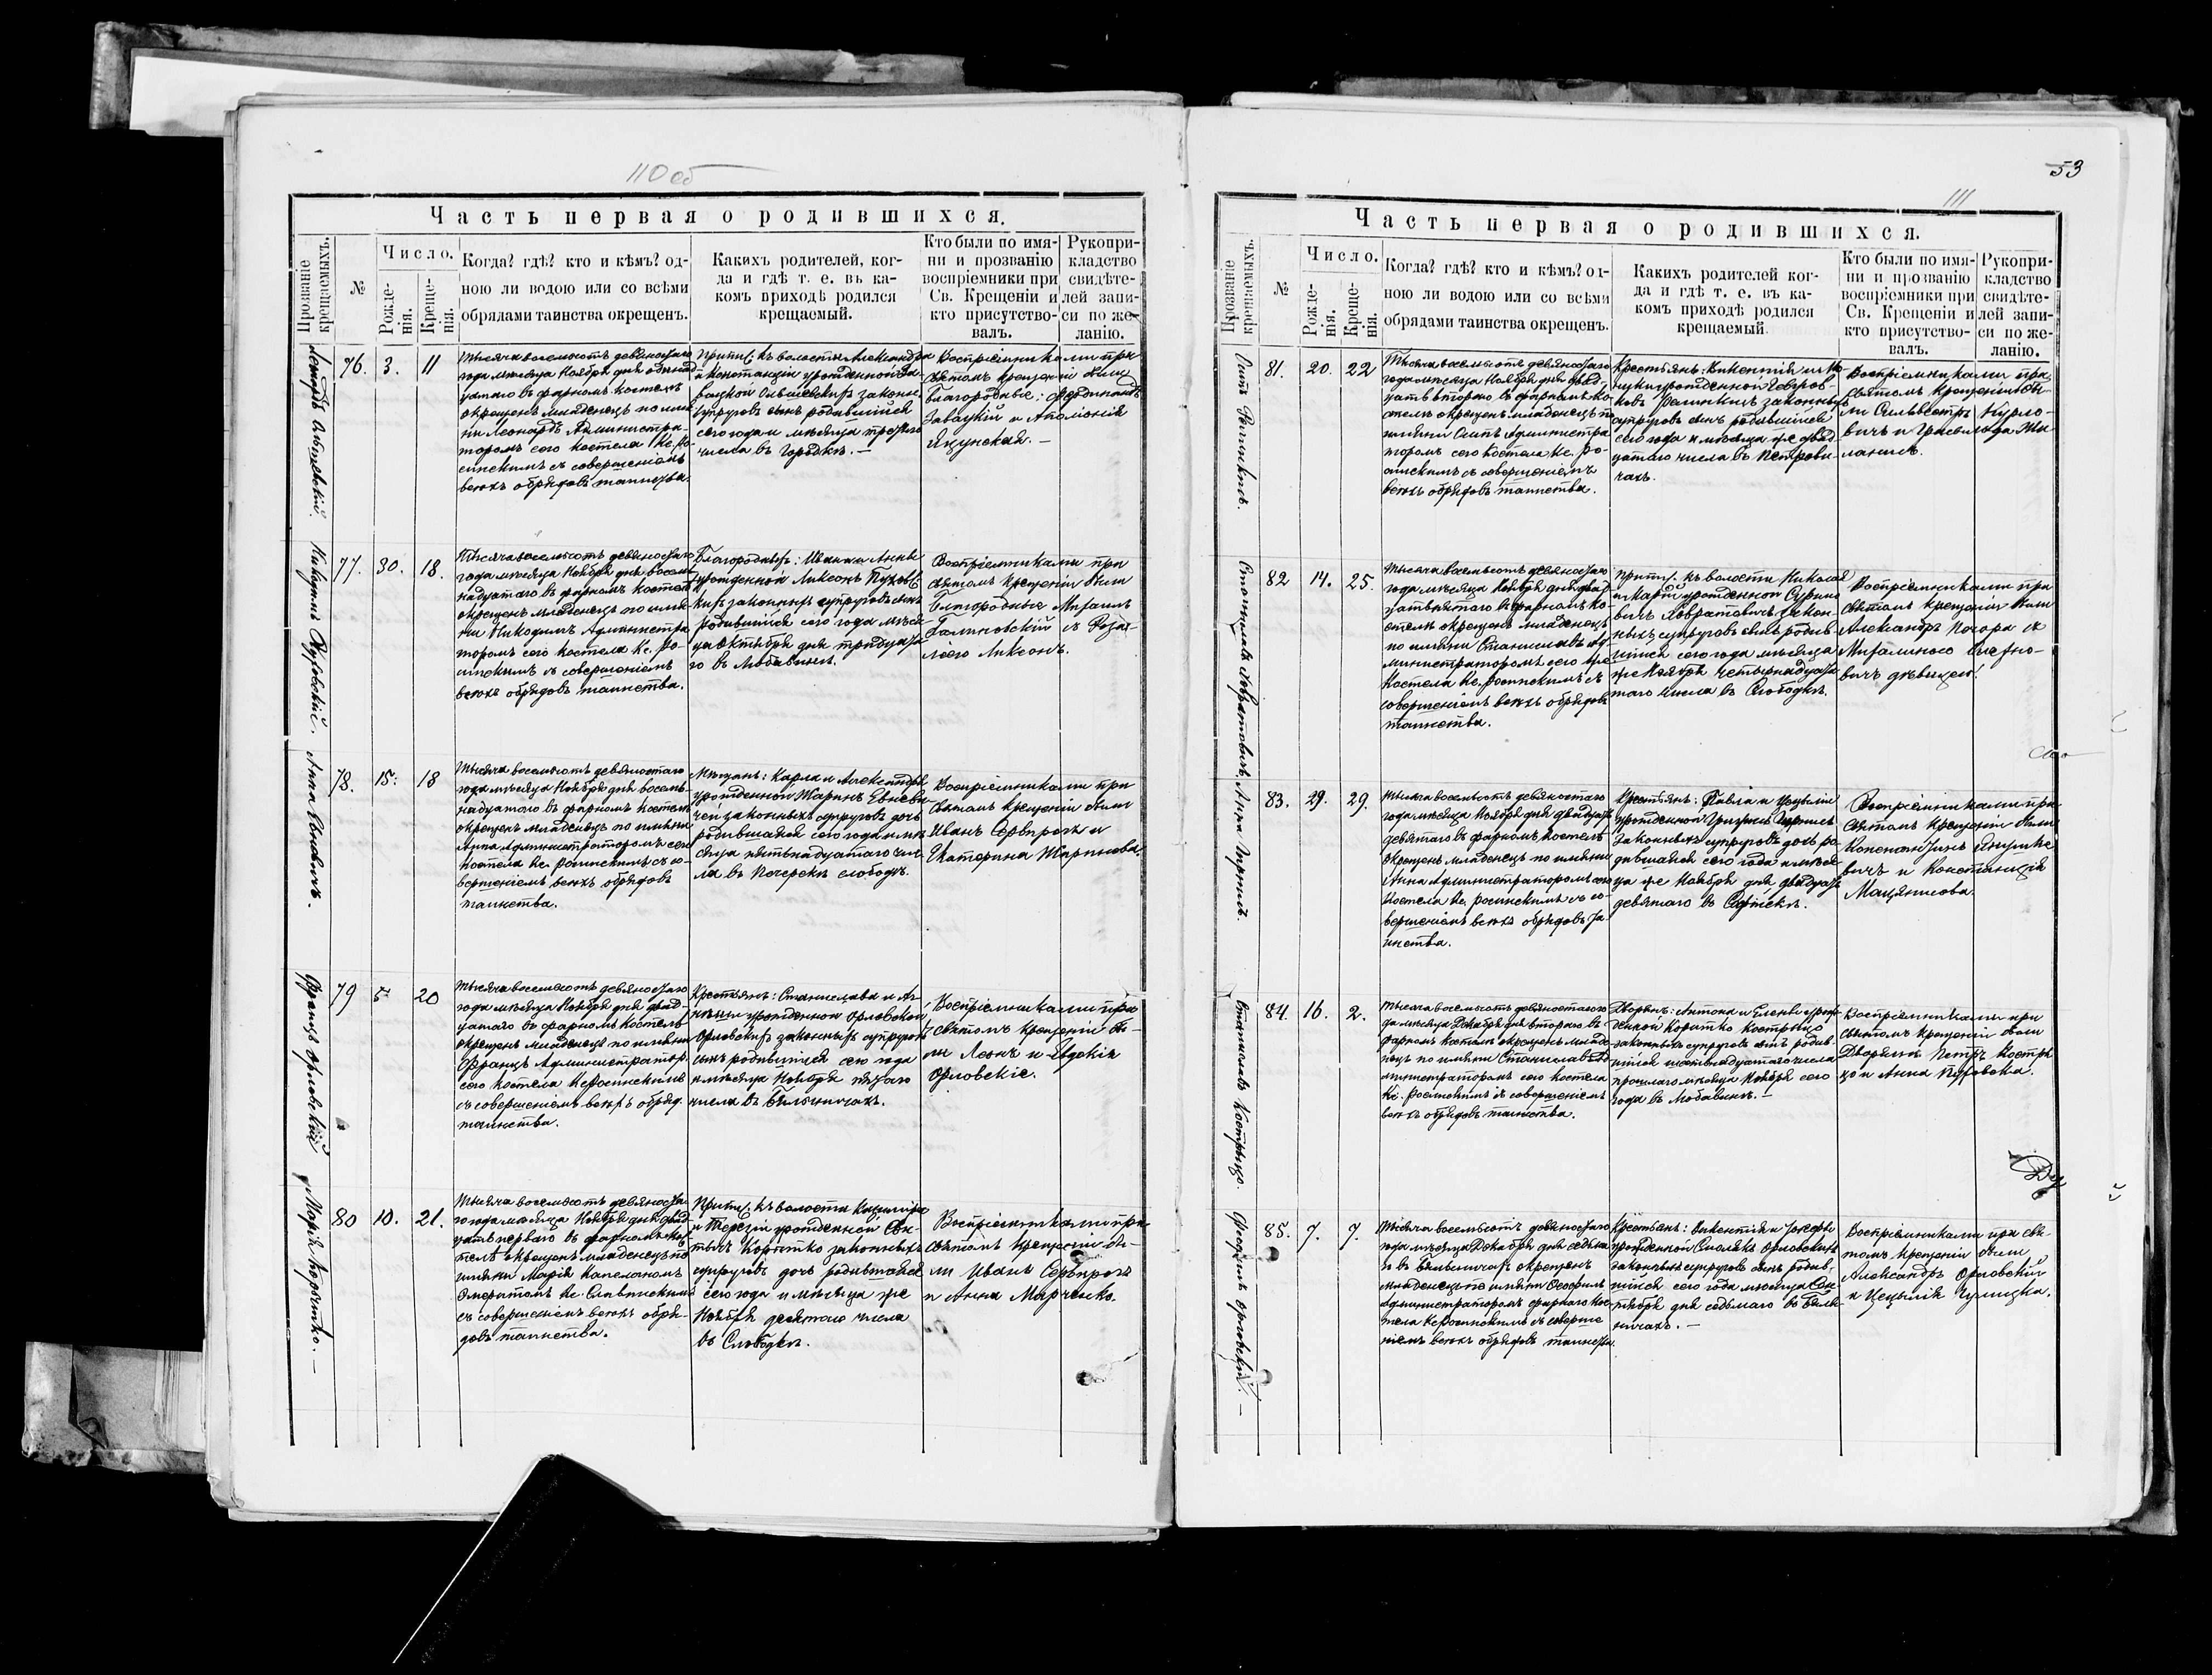 110 об
Часть первая о родившихся.
Прозвание крещаемыхъ.
№
Число.
Рожде-
нія.
Креще-
нія.
Когда? гдѣ? кто и кѣмъ? од-
ною ли водою или со всѣми
обрядами таинства окрещенъ.
Какихъ родителей, ког-
да и гдѣ т. е. въ ка-
комъ приходѣ родился
крещаемый.
Кто были по имя-
ни и прозванію
воспріемники при
Св. Крещеніи и
кто присутство-
валъ.
Рукопри-
кладство
свидѣте-
лей запи-
си по же-
ланію.
Леонардъ
76. 3. 11
Тысяча восемьсотъ девяностаго
года мѣсяца Ноября дня одинад
цатаго въ фарномъ костелѣ
окрещенъ младенецъ по имя
ни Леонардъ Администра
торомъ сего костела Кс. Ро-
синскимъ съ совершеніемъ
всѣхъ обрядовъ таинства.
Припис. къ волости Александра
и Констанціи урожденной
законн.
супруговъ сынъ родившійся
сего года и мѣсяца третьяго
числа въ Городкѣ. —
Воспріемниками при
Святомъ Крещеніи были
Благородные: Фердинандъ
Завадскій и Аполонія
Яцунская. —
Никодимъ
77. 30. 18.
Тысяча восемьсотъ девяностаго
года мѣсяца Ноября дня восем-
надцатаго въ фарномъ костелѣ
окрещенъ младенецъ по имя-
ни Никодимъ Администра
торомъ сего костела Кс. Ро-
синскимъ съ совершеніемъ
всѣхъ обрядовъ таинства.
Благородныхъ: Ивана и Анны
урожденной Ликсонъ
законныхъ супруговъ сынъ
родившійся сего года мѣся
ца Октября дня тридцата
го въ Любавинѣ.
Воспріемниками при
Святомъ Крещеніи были
Благородные Михаилъ
Галиновскій съ Роза-
ліею Ликсонъ.
Анна
78. 15. 18
Тысяча восемьсотъ девяностаго
года мѣсяца Ноября дня восем-
надцатаго въ фарномъ костелѣ
окрещенъ младенецъ по имяни
Анна Администраторомъ сего
костела Кс. Росинскимъ съ со-
вершеніемъ всѣхъ обрядовъ
таинства.
Мѣщанъ: Карла и Александры
урожденной Жаринъ
законныхъ супруговъ дочь
родившаяся сего года и мѣ
сяца пятьнадцатаго чис
ла въ слободѣ.
Воспріемниками при
Святомъ Крещеніи были
Иванъ Серпрогъ и
Екатерина Жаринова.
Францъ Орловскій
79 5 20
Тысяча восемьсотъ девяностаго
года мѣсяца Ноября дня двад-
цатаго въ фарномъ костелѣ
окрещенъ младенецъ по имяни
Францъ Администратор.
сего костела Кс Росинскимъ
съ совершеніемъ всѣхъ обряд.
таинства.
Крестьянъ: Станислава и
урожденной Орловской
Орловскихъ законныхъ супруговъ
сынъ родившійся сего года
и мѣсяца Ноября пятаго
числа въ Бѣльничахъ.
Воспріемниками при
Святомъ Крещеніи бы-
ли Леонъ и Евдокія
Орловскіе.
Марія Корытко. —
80 10. 21.
Тысяча восемьсотъ девяноста
го года мѣсяца Ноября дня двад
цать перваго въ фарномъ кос
телѣ окрещенъ младенецъ по
имяни Марія Капеланомъ
Емеритомъ Кс. Славинскимъ
съ совершеніемъ всѣхъ обря-
довъ таинства.
Припис. къ волости Казиміра
и Терезіи урожденной
Корытко законныхъ
супруговъ дочь родившаяся
сего года и мѣсяца же
Ноября десятаго числа
въ Слободкѣ.
Воспріемниками при
Святомъ Крещеніи бы-
ли Иванъ Серпрогъ
и Анна Марченко.
53
111
Часть первая о родившихся.
Прозвание крещаемыхъ.
№
Число.
Рожде-
нія.
Креще-
нія.
Когда? гдѣ? кто и кѣмъ? од-
ною ли водою или со всѣми
обрядами таинства окрещенъ.
Какихъ родителей ког-
да и гдѣ т. е. въ ка-
комъ приходѣ родился
крещаемый
Кто были по имя-
ни и прозванію
воспріемники при
Св. Крещеніи и
кто присутство-
валъ.
Рукопри-
кладство
свидѣте-
лей запи-
си по же-
ланію.
Осипъ
81. 20. 22
Тысяча восемьсотъ девяностаго
года мѣсяца Ноября дня двад-
цать втораго въ фарномъ ко-
стелѣ окрещенъ младенецъ по
имяни Осипъ Администра
торомъ сего костела Кс. Ро-
синскимъ съ совершеніемъ
всѣхъ обрядовъ таинства.
Крестьянъ: Викентія и
урожденной
законныхъ
супруговъ сынъ родившійся
сего года и мѣсяца же двад-
цатаго числа въ Петрови-
чахъ.
Воспріемниками при
Святомъ Крещеніи бы-
ли Сильвестръ Нурко-
вичъ и
Станиславъ Ловратовичъ
82 14. 25.
Тысяча восемьсотъ девяностаго
года мѣсяца Ноября дня двад
цать пятаго въ фарномъ ко-
стелѣ окрещенъ младенецъ
по имяни Станиславъ Ад-
министраторомъ сего же
костела Кс. Росинскимъ съ
совершеніемъ всѣхъ обрядовъ
таинства.
Припис. къ волости Николая
и Маріи урожденной Сурино
вичъ Ловратовичъ закон-
ныхъ супруговъ сынъ родив-
шійся сего года мѣсяца
же Ноября четырнадца
таго числа въ Слободкѣ.
Воспріемниками при
Святомъ Крещеніи были
Александръ Погора и
Михалиною
вичъ дѣвицею.
Анна
83. 29. 29.
Тысяча восемьсотъ девяностаго
года мѣсяца Ноября дня двадцать
девятаго въ фарномъ костелѣ
окрещенъ младенецъ по имяни
Анна Администраторомъ сего
костела Кс. Росинскимъ съ со-
вершеніемъ всѣхъ обрядовъ та
инства.
Крестьянъ: Павла и Цецыліи
урожденной
законныхъ супруговъ дочь ро-
дившаяся сего года и мѣся-
ца же Ноября дня двадцать
девятаго въ
Воспріемниками при
Святомъ Крещеніи были
Константинъ
вичъ и Констанція
Мацянисова.
Станиславъ Кострыцо.
84. 16. 2.
Тысяча восемьсотъ девяностаго го
да мѣсяца Декабря дня втораго въ
фарномъ костелѣ окрещенъ младе-
нецъ по имяни Станиславъ Ад-
министраторомъ сего костела
Кс. Росинскимъ съ совершеніемъ
всѣхъ обрядовъ таинства.
Дворянъ: Антона и Елены урож-
денной Корытко Кострыцо
законныхъ супруговъ сынъ родив-
шійся шестьнадцатаго числа
прошлаго мѣсяца Ноября сего
года въ Любавинѣ. —
Воспріемниками при
Святомъ Крещеніи были
Дворяне Петръ Костры
цо и Анна Пуховска.
Орловскій. —
85. 7. 7.
Тысяча восемьсотъ девяностаго
года мѣсяца Декабря дня седьма
го въ Бѣльничахъ окрещенъ
младенецъ по имяни
Администраторомъ фарнаго кос
тела Кс Росинскимъ съ соверше
ніемъ всѣхъ обрядовъ таинства.
Крестьянъ: Викентія и Іозефы
урожденной Смолякъ Орловскихъ
законныхъ супруговъ сынъ родив-
шійся сего года мѣсяца
дня седьмаго въ Бѣль-
ничахъ. —
Воспріемниками при Свя-
томъ Крещеніи были
Александръ Орловскій
и Цецылія